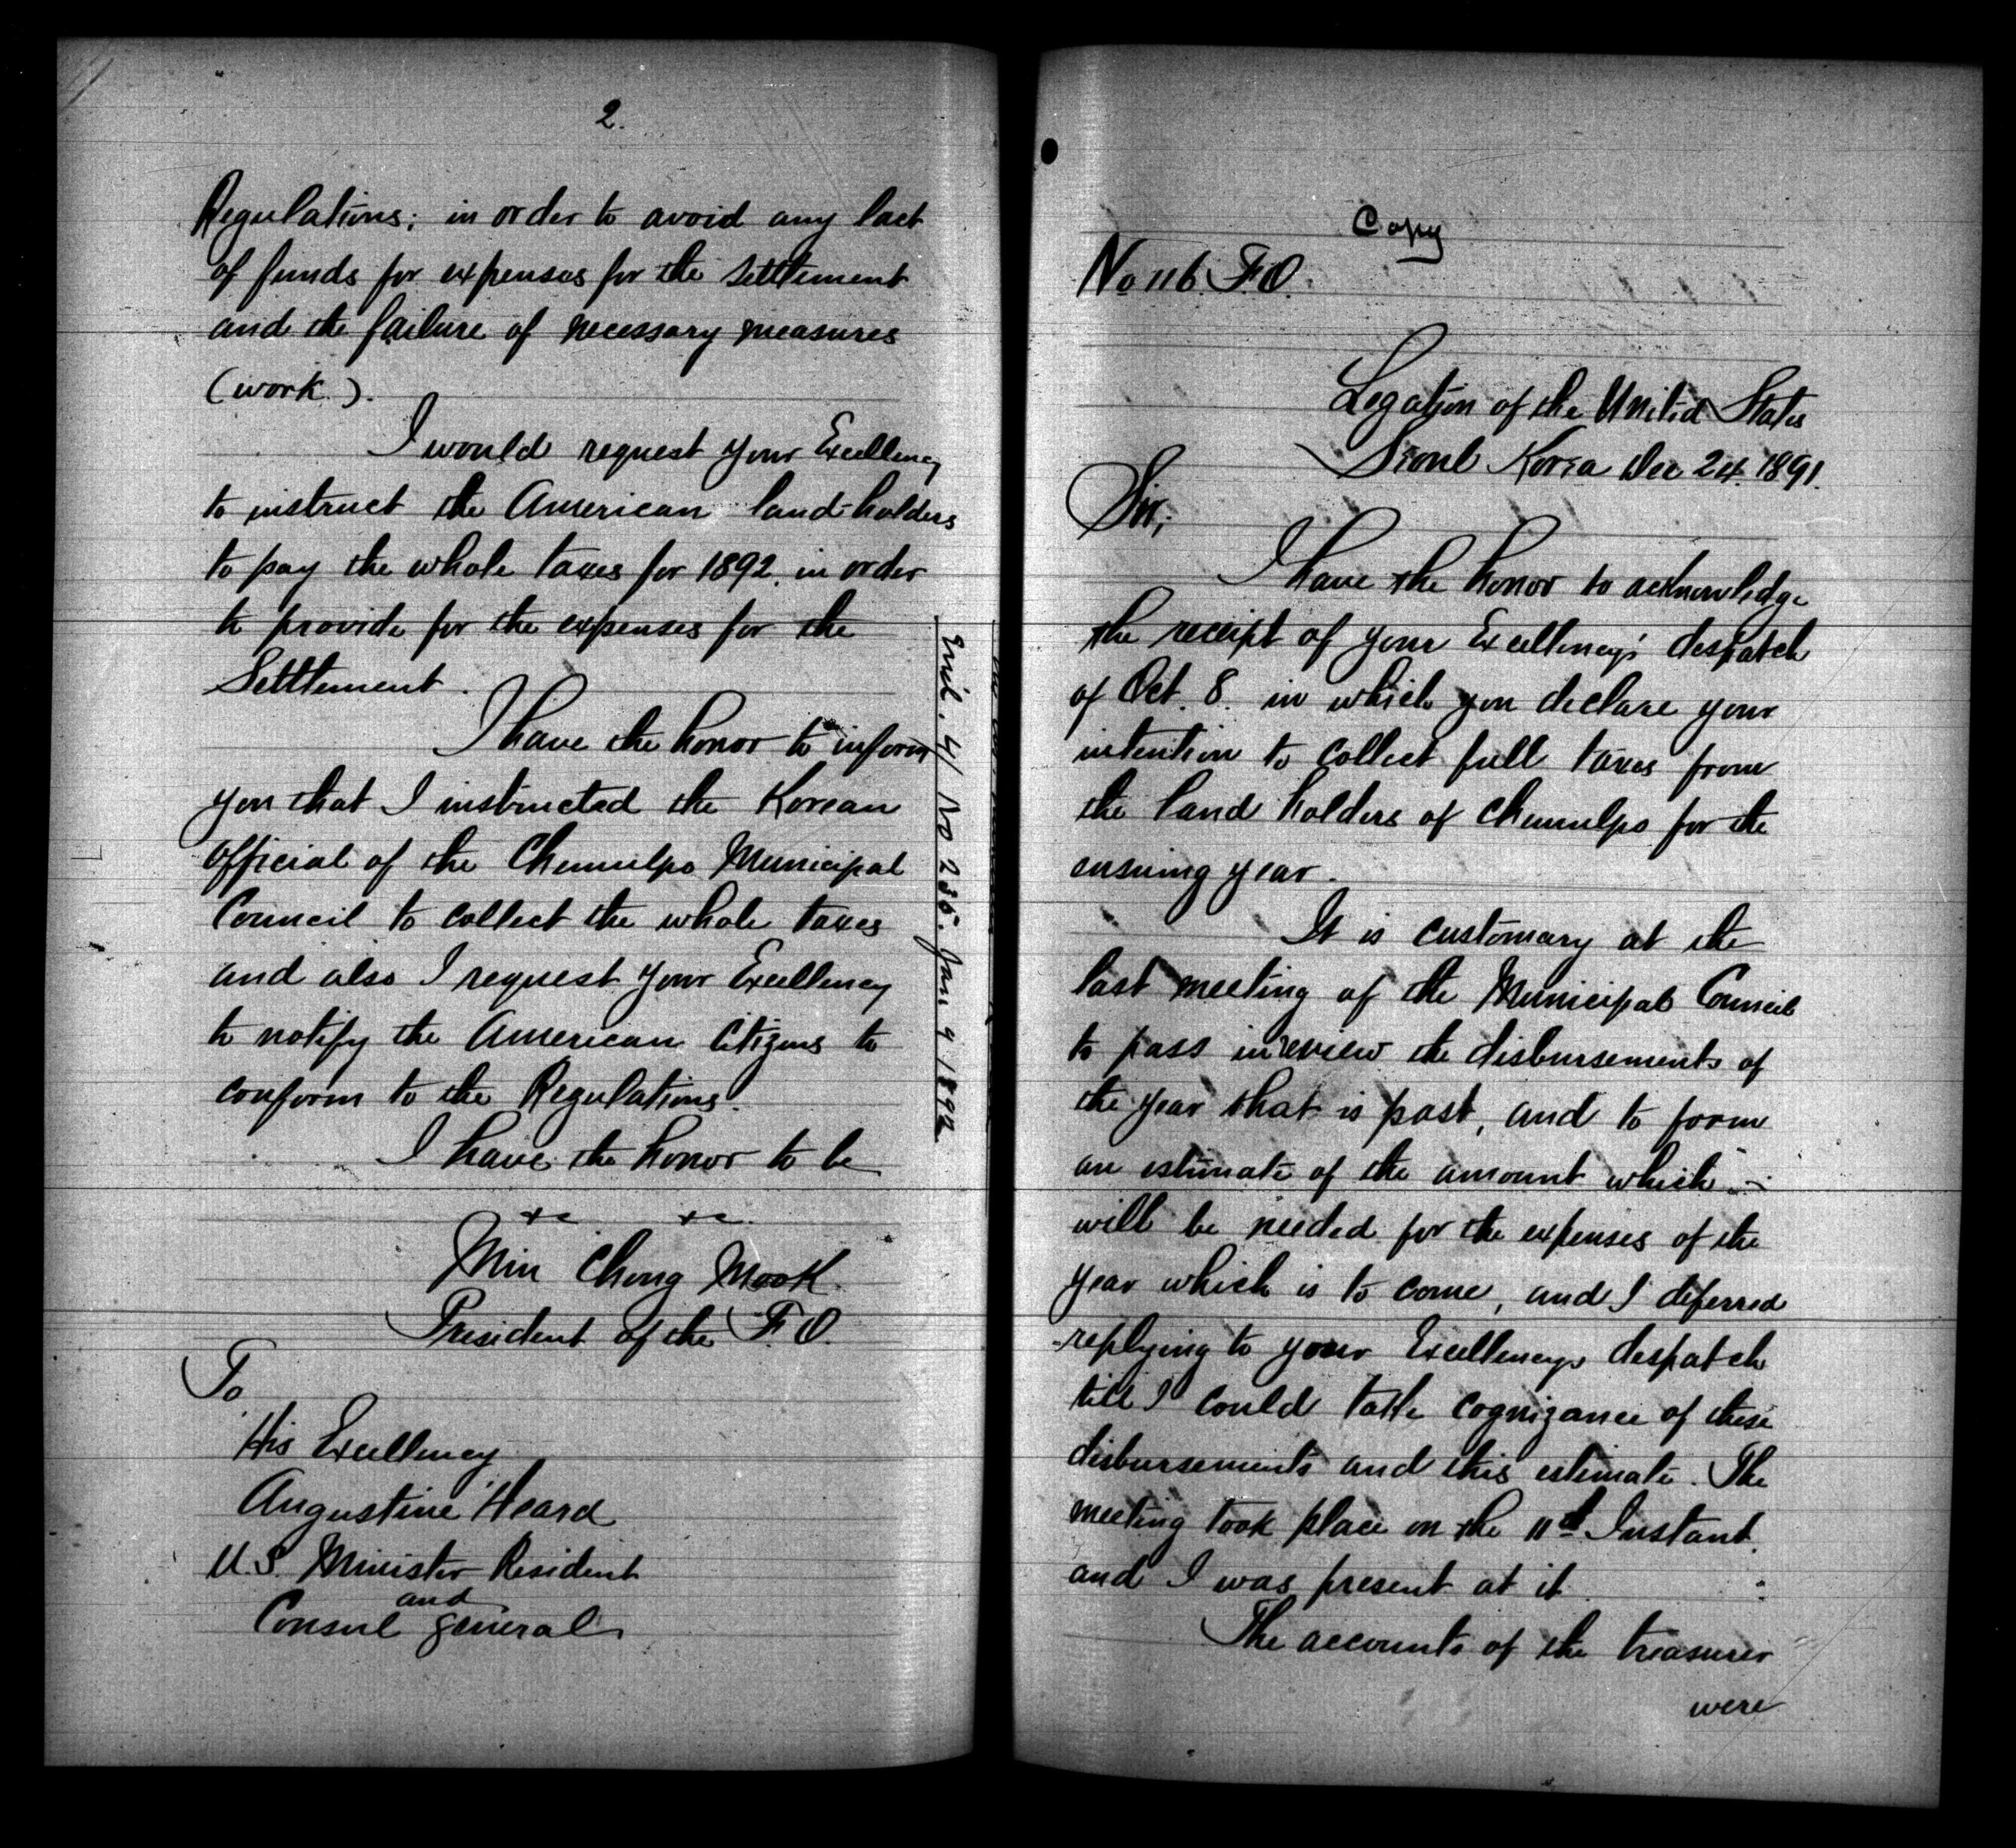 2.
Regulations; in order to avoid any lact
of funds for expenses for the settlement
and the failure of necessary measures
(work).
I would request your Excellency
to instruct the American land-holders
to pay the whole taxes for 1892. in order
to provide for the expenses for the
Settlement.
I have the honor to inform
you that I instructed the Korean
official of the Chemulpo Municipal
Council to collect the whole taxes
and also I request your Excellency
to notify the American Citizens to
conform to the Regulations.
I have the honor to be
&c &c.
Min Chong Mook.
President of the F.O.
To
His Excellency
Augustine Heard
U.S. Minister Resident
and
Consul General
Encl. 4/ No 235. Jan 9 1892
Copy
No 116. F.O.
Legation of the United States
Seoul Korea Dec 24. 1891.
Sir,
I have the honor to acknowledge
the receipt of your Excellency's despatch
of Oct. 8. in which you declare your
intention to collect full taxes from
the land holders of Chemulpo for the
ensuing year.
It is customary at the
last meeting of the Municipal Council
to pass in review the disbursements of
the year that is past, and to form
an estimate of the amount which
will be needed for the expenses of the
year which is to come, and I deferred
replying to your Excellencys despatch
till I could take cognizance of these
disbursements and this estimate. The
meeting took place on the 11th Instant.
and I was present at it.
The accounts of the treasurer
were